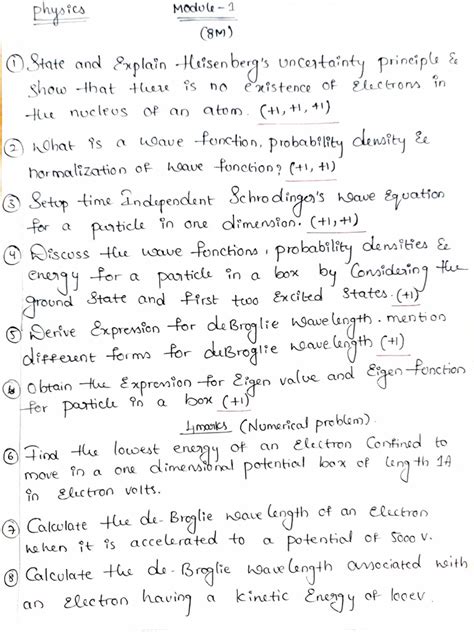 Physics Module-1
(8M)
① State and Explain Heisenberg's uncertainty principle &
Show that there is no existence of Electrons in
the nucleus of an atom. (+1, +1, +1)
② What is a wave function, probability density &
normalization of wave function? (+1, +1)
③ Setup time Independent Schrodinger's wave Equation
for a particle in one dimension. (+1, +1)
④ Discuss the wave functions, probability densities &
energy for a particle in a box by Considering the
ground State and first two Excited States. (+1)
⑤ Derive Expression for deBroglie wavelength. mention
different forms for deBroglie wavelength (+1)
⑥ Obtain the Expression for Eigen value and Eigen-function
for particle in a box (+1)
4marks (Numerical problem).
⑥ Find the lowest energy of an Electron Confined to
move in a one dimensional potential box of length 1A
in Electron volts.
⑦ Calculate the de-Broglie wave length of an Electron
when it is accelerated to a potential of 5000 V.
⑧ Calculate the de-Broglie wavelength associated with
an Electron having a kinetic Energy of 100eV.